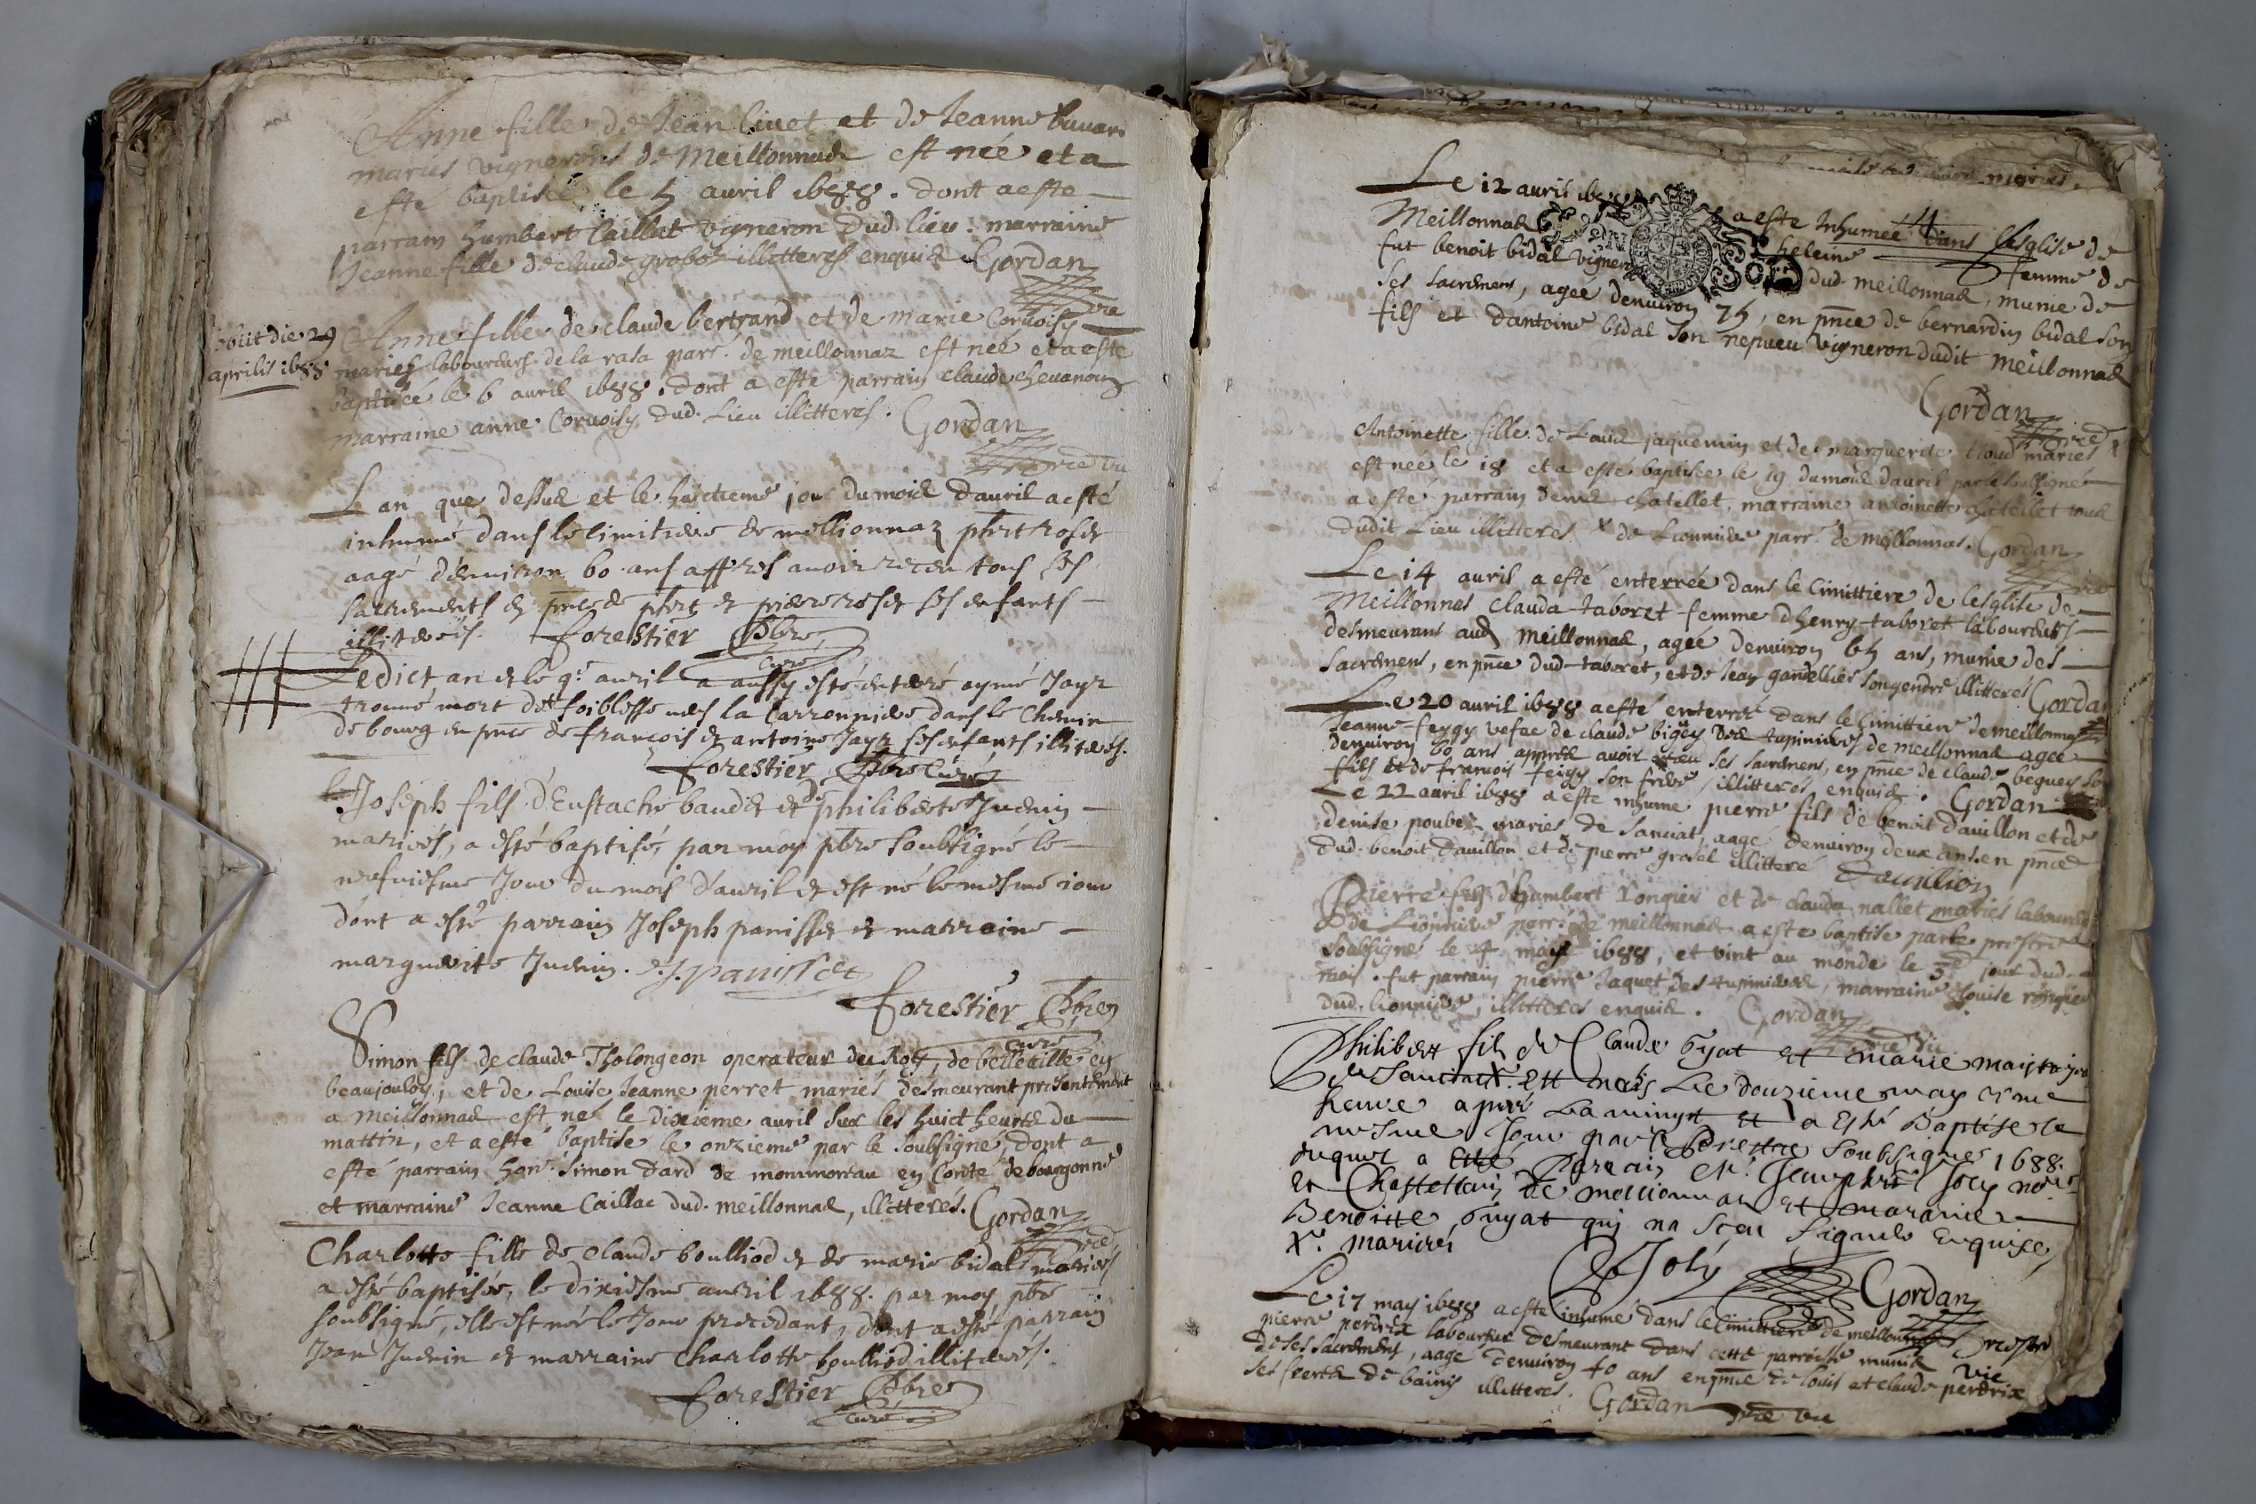 Anne fille de Jean livet et de Jeanne buvar
mariés vignerons de Meillonnad est née et a
esté baptisée le 5 avril 1688. dont a este
parrain humbert Caillat vigneron dud. lieu: marraine
Jeanne fille de claude grobox illitteres enquis Gordan
vic
obiit die 29
aprilis 1688
Anne fille de claude bertrand et de marie Corvoisy
mariés labourdeurs de la rasa parr. de meillonnaz est née et a este
baptisée le 6 avril 1688. dont a este parrain claude chevanon
marraine anne Corvoisy dud. Lieu illitteres. Gordan
L an que dessud et le huictieme jour du mois davril a esté
inhumé dans le cimitiere de mellionnaz phert rosey
aagé d'environ 60 ans appres avoir receu tous ses
sacrements en pnce de phert et pierre rosey ses enfants
illiterés. forestier Pbre
Curé
Ledict an et le 9e avril a aussy esté enterré aymé Jayr
trouvé mort de foiblesse vers la Carronniere dans le Chemin
de bourg en pnce de francois et antoine Jayr ses enfants illiterés.
forestier Pbre Curé
Joseph fils d'Eustache baudet et de philiberte Juenin
mariés, a esté baptisé, par moy pbre soubsigné le
neufviesme Jour du mois d'avril et est né le mesme jour
dont a esté parrain Joseph panisset et marraine
marguerite Juenin. J. panisset
forestier Pbre
Curé
Simon fils de claude Tholongeon operateur du Roy, de belleville en
beaujoulois, et de Louise Jeanne perret mariés desmeurant presentement
a Meillonnad est né le dixieme avril sur les huict heures du
mattin, et a esté baptise le onzieme par le soubsigné, dont a
esté parrain hon. Simon Dard de monmorau en Conté de bourgonne
et marraine Jeanne Caillac dud. meillonnad, illitterés. Gordan
Charlotte fille de claude boulliod et de marie bidal mariés
a esté baptisée, le dixiesme avril 1688. par moy pbre
soubsigné, elle est née le Jour precedant, dont a esté parrain
Jean Juenin et marraine Charlotte boulliod illiterés.
forestier Pbre
Curé
14
Le 12 avril 1688 a este Inhumée dans lesglise de
Meillonnad heleine femme de
fut benoit bidal vigneron dud. meillonnad, munie de
ses sacremens, agée denviron 75, en pnce de bernardin bidal son
fils et dantoine bidal son nepveu vigneron dudit meillonnad
Gordan
Antoinette fille de Laud jaquemin et de marguerite mariés
est née le 18 et a esté baptisée le 19 du mois davril par le soubsigné
a esté parrain denis chatellet, marraine antoinette chatellet tous
dudit Lieu illitteres. de Lionniere parr. de meillonnas. Gordan
Le 14 avril a esté enterrée dans le Cimittiere de lesglise de
Meillonnas Clauda taboret femme dhenry taboret labourdeurs
desmeurans aud. meillonnad, agée denviron 65 ans, munie des
sacremens, en pnce dud. taboret, et de Jean gardellier son gendre illitterés Gordan
Le 20 avril 1688 a esté enterrée dans le Cimittiere de meillonnas
Jeanne feygy vefve de claude bigey des tupinieres de meillonnad agée
denviron 60 ans appred avoir receu ses sacremens, en pnce de claude begues son
fils et de francois feigy son frere, illitterés enquis. Gordan
Le 22 avril 1688 a este inhume pierre fils de benoit davillon et de
denise poubet mariés de Sanciat, aagé denviron deux ans en pnce
dud. benoit davillon et de pierre gravel illitteré Davillion
Pierre fils dhumbert Rongier et de clauda nallet mariés labourd
de Lionniere parr. de meillonnad a este baptise par le prestre
soubsigné le 4 may 1688, et vint au monde le 3e jour dud.
mois. fut parrain pierre Jaquet des tupinieres, marraine Louise rongier
dud. Lionniere, illitteres enquis. Gordan
Philibert fils de Claude Guyat et marie
de Sanciat Est nais Le douzieme may
heure apres La minuyt et a Esté Baptise le
mesme Jour par le Prestre soubsigné 1688.
duquel a Esté Parrain Joly
et Chastellain de mellionnas Et maraine
Benoitte Guyat qui na sceu signer Enquise,
X. mariés
Joly Gordan
Le 17 may 1688 a esté inhumé dans le Cimittiere de meillonnad
pierre perdrix labourdeur desmeurant dans cette parroisse munis
de ses sacremens, aagé denviron 40 ans en pnce de louis et claude perdrix
ses freres de bainis illitteres. Gordan